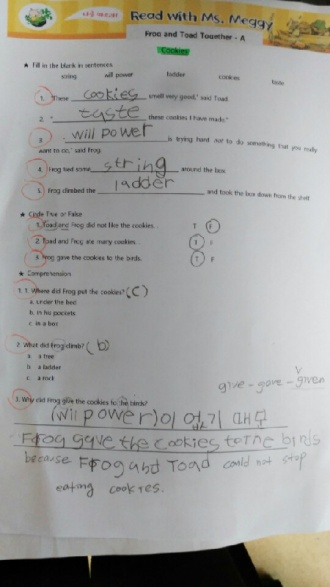 Read with Ms. Meggy
Frog and Toad Together - A
Cookies
★ Fill in the blank in sentences.
string will power ladder cookies taste
1. "These cookies smell very good," said Toad.
2. " taste these cookies I have made."
3. will power is trying hard not to do something that you really
want to do," said Frog.
4. Frog tied some string around the box.
5. Frog climbed the ladder and took the box down from the shelf
★ Circle True or False
1. Toad and Frog did not like the cookies. T F
2. Toad and Frog ate many cookies. T F
3. Frog gave the cookies to the birds. T F
★ Comprehension
1. 1. Where did Frog put the cookies? (C)
a. under the bed
b. in his pockets
c. in a box
2. What did Frog climb? (b)
a. a tree
b. a ladder
c. a rock
give - gave - given
3. Why did Frog give the cookies to the birds?
(will power)이 없기 때문
Frog gave the cookies to the birds
because Frog and Toad could not stop
eating cookies.